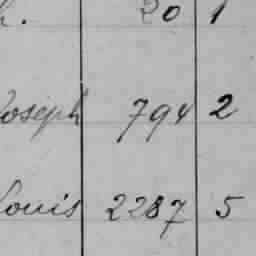 h. 20 1
Joseph 794 2
Louis 2287 5